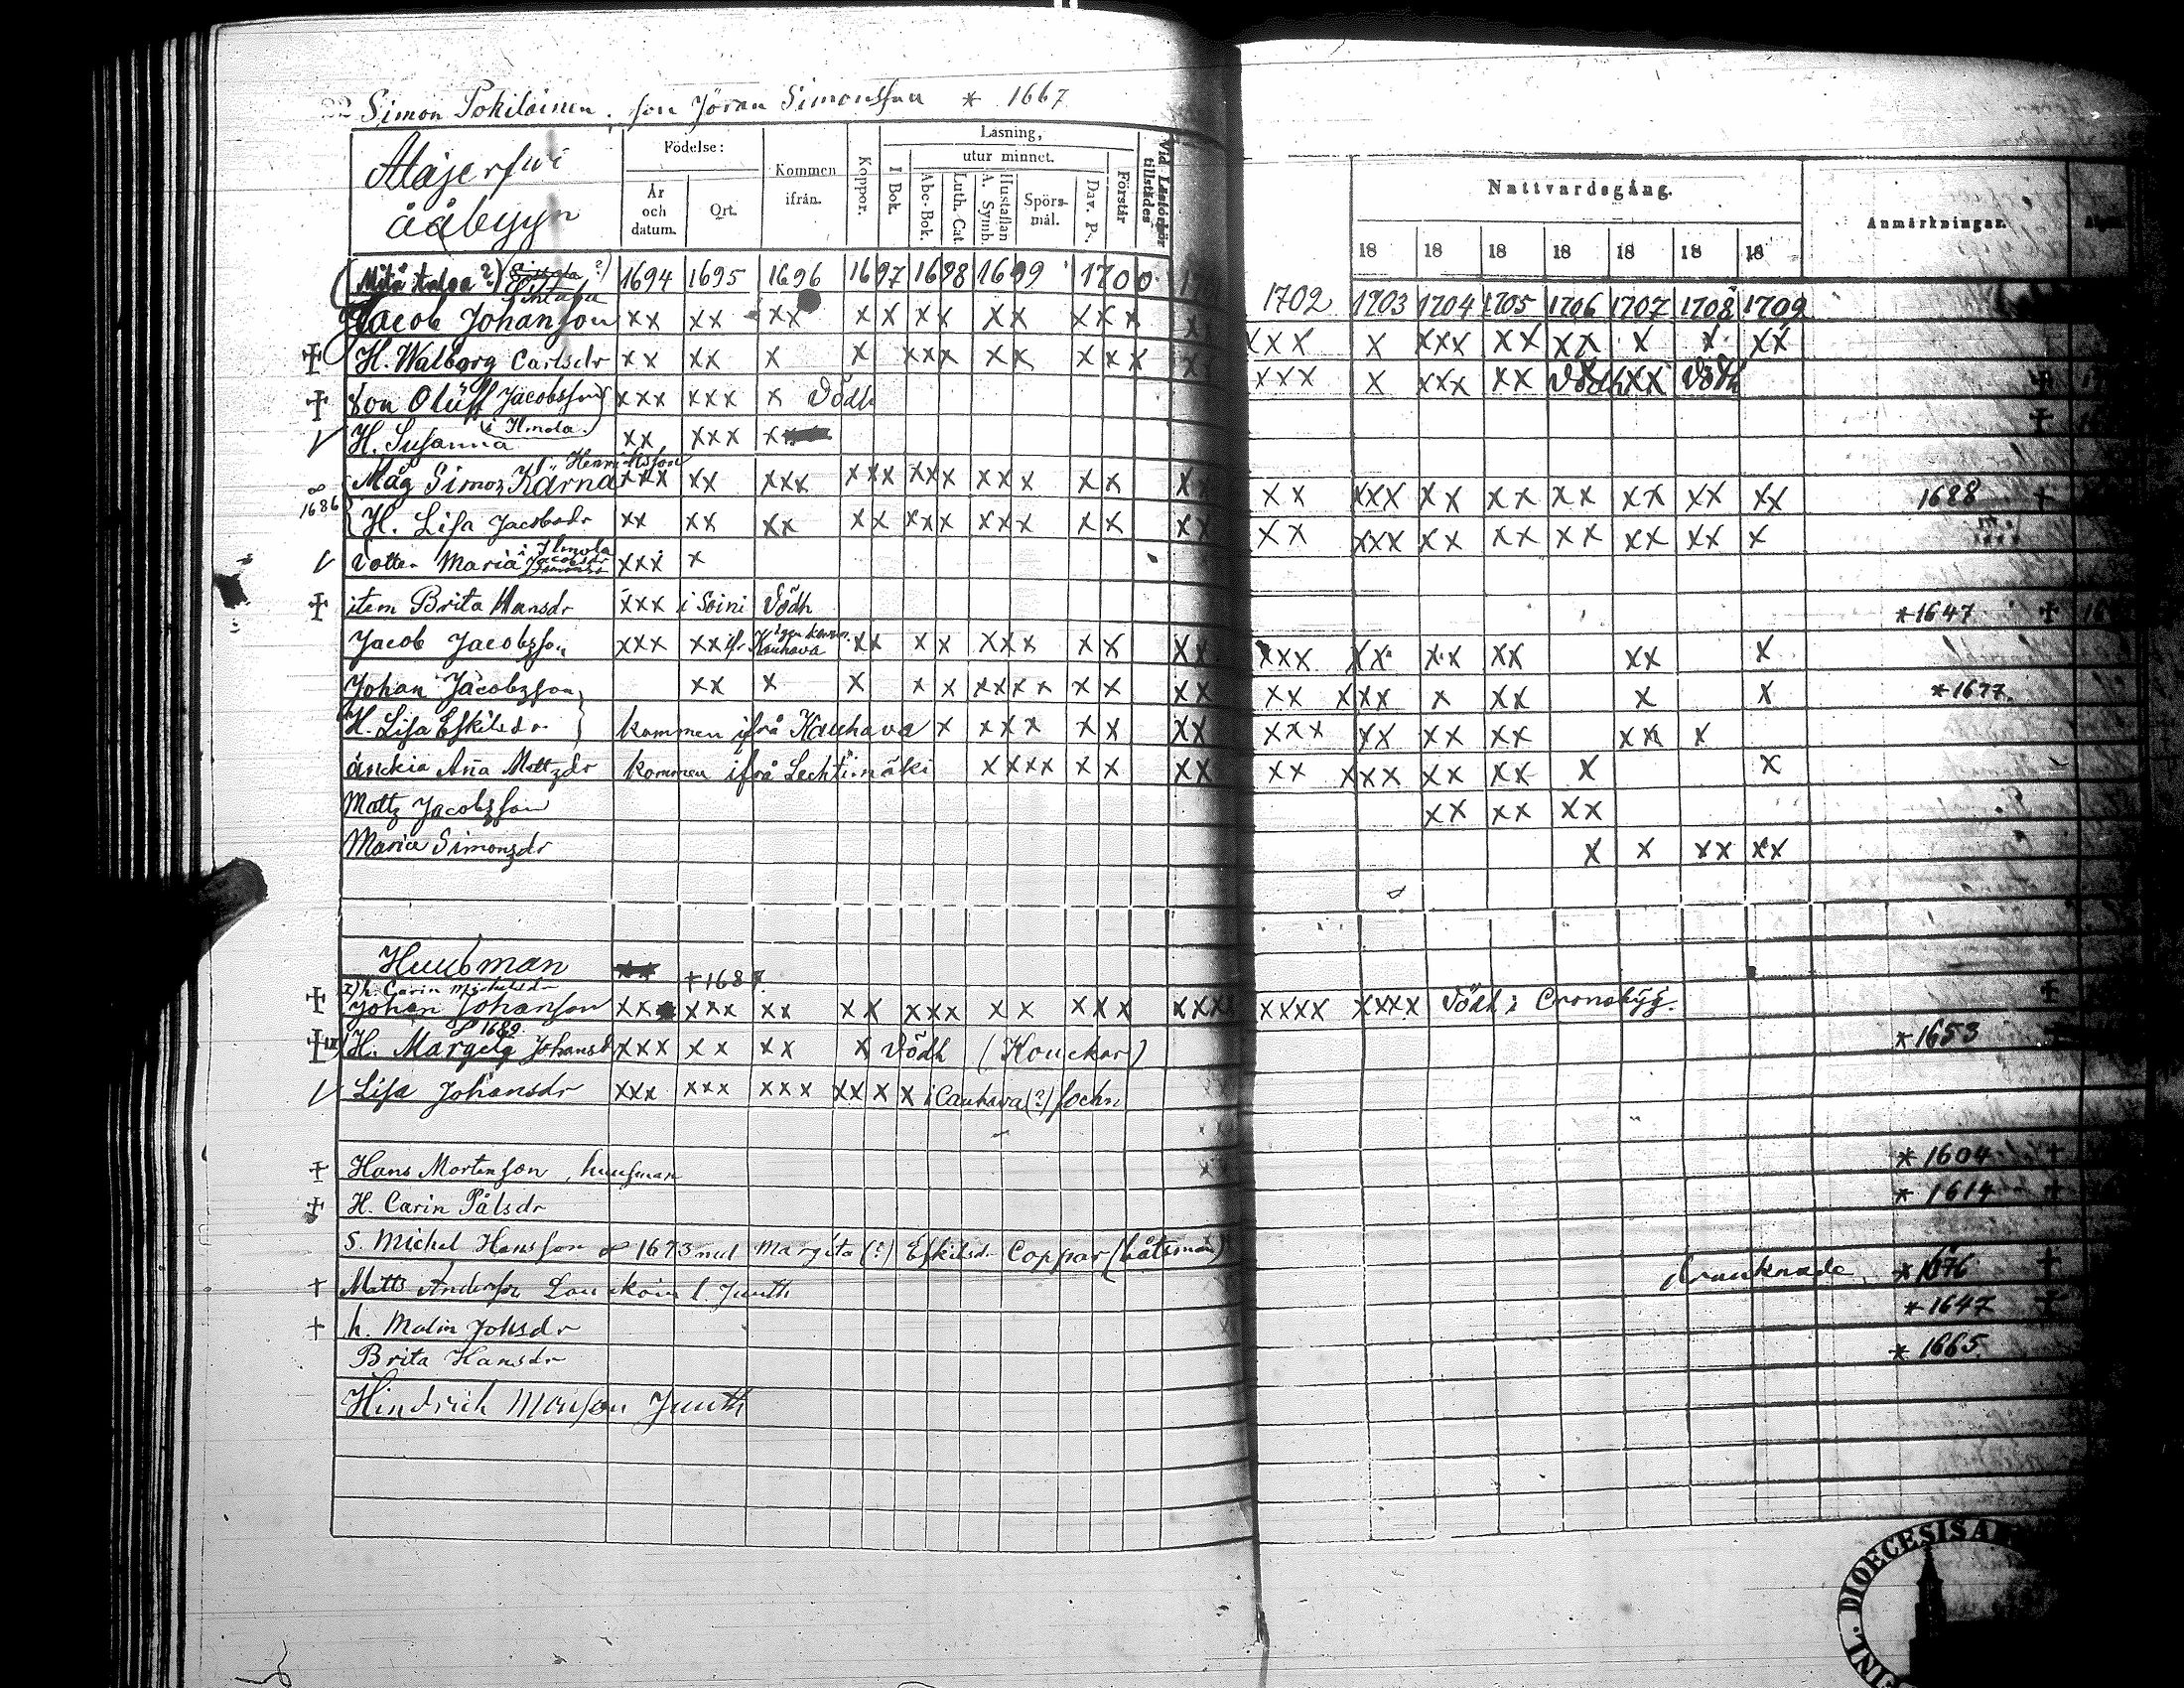 Simon Pohilainen. son Jöran Simonsson * 1667
Alajerfwi
ååbyyn
Födelse:
År och datum.
Ort.
Kommen ifrån.
Koppor.
Läsning,
I Bok.
utur minnet.
Abc-Bok.
Luth. Cat.
A. Symb.
Hustaflan
Spörsmål.
Dav. P.
Förstår
Vid Läsförhör tillstädes
Nattvardsgång.
18 18 18 18 18 18 18
Anmärkningar.
1694 1695 1696 1697 1698 1699 1700
1702 1703 1704 1705 1706 1707 1708 1709
Jacob Johansson xx xx xx xx xx xx xxx xxx x xxx xx xx x x xx
H. Walborg Carlsdr xx xx x x xxx xx xxx xxx x xxx xx Dödh xx Dödh
son Oluff Jacobsson xxx xxx x Dödh
H. Susanna i Ilmola xx xxx
Måg Simon Kärnä Henriksson xxx xx xxx xxx xxx xxx xx xx xx xxx xx xx xx xx xx xx 1688 +
∞ 1686
H. Lisa Jacobsdr xx xx xx xx xxx xxx xx xx xx xxx xx xx xx xx xx x
dotter Maria i Ilmola Jacobsdr xxx x
item Brita Hansdr xxx i Soini Dödh * 1647 +
Jacob Jacobsson xxx xx ifr. Kauhava igen komm. xx xx xxx xx xx xxx xx xx xx xx x
Johan Jacobsson xx x x xx xxxx xx xx xx xxx x xx x x * 1677
H. Lisa Eskilsdr kommen ifrå Kauhava x xxx xx xx xxx xx xx xx xx x
änckia Aña Mattzdr kommen ifrå Lechtimäki xxxx xx xx xx xxx xx xx x x
Mattz Jacobsson xx xx xx
Maria Simonsdr x x xx xx
Huusman
I) h. Carin Michelsdr + 1687.
Johan Johansson xxx xxx xx xx xxx xx xxx xxx xxxx xxxx Dödh i Cronobyy. +
∞ 1689
H. Margeta Johansdr xxx xx xx x Dödh (Kouckar) * 1653
Lisa Johansdr xxx xxx xxx xx x x i Cauhava (?) sochn
Hans Mortensson, huusman * 1604 +
H. Carin Pålsdr * 1614 +
S. Michel Hansson ∞ 1673 med Margita (?) Eskilsdr Coppar (båtsman)
Matts Andersson l. Juuth drunknade * 1676 +
h. Malin Johsdr * 1647 +
Brita Hansdr * 1665
Hindrich Juuth
DIOECESISA